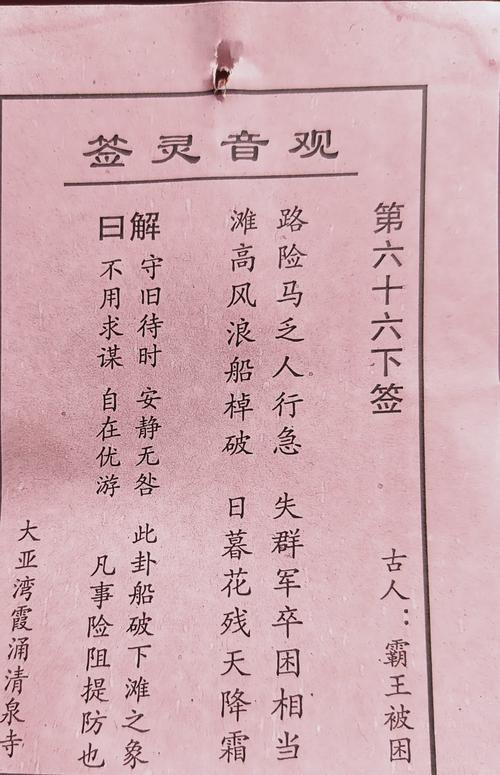 观音灵签
第六十六下签
古人：霸王被困
路险马乏人行急 失群军卒困相当
滩高风浪船棹破 日暮花残天降霜
解曰
守旧待时 安静无咎 此卦船破下滩之象
不用求谋 自在优游 凡事险阻提防也
大亚湾霞涌清泉寺